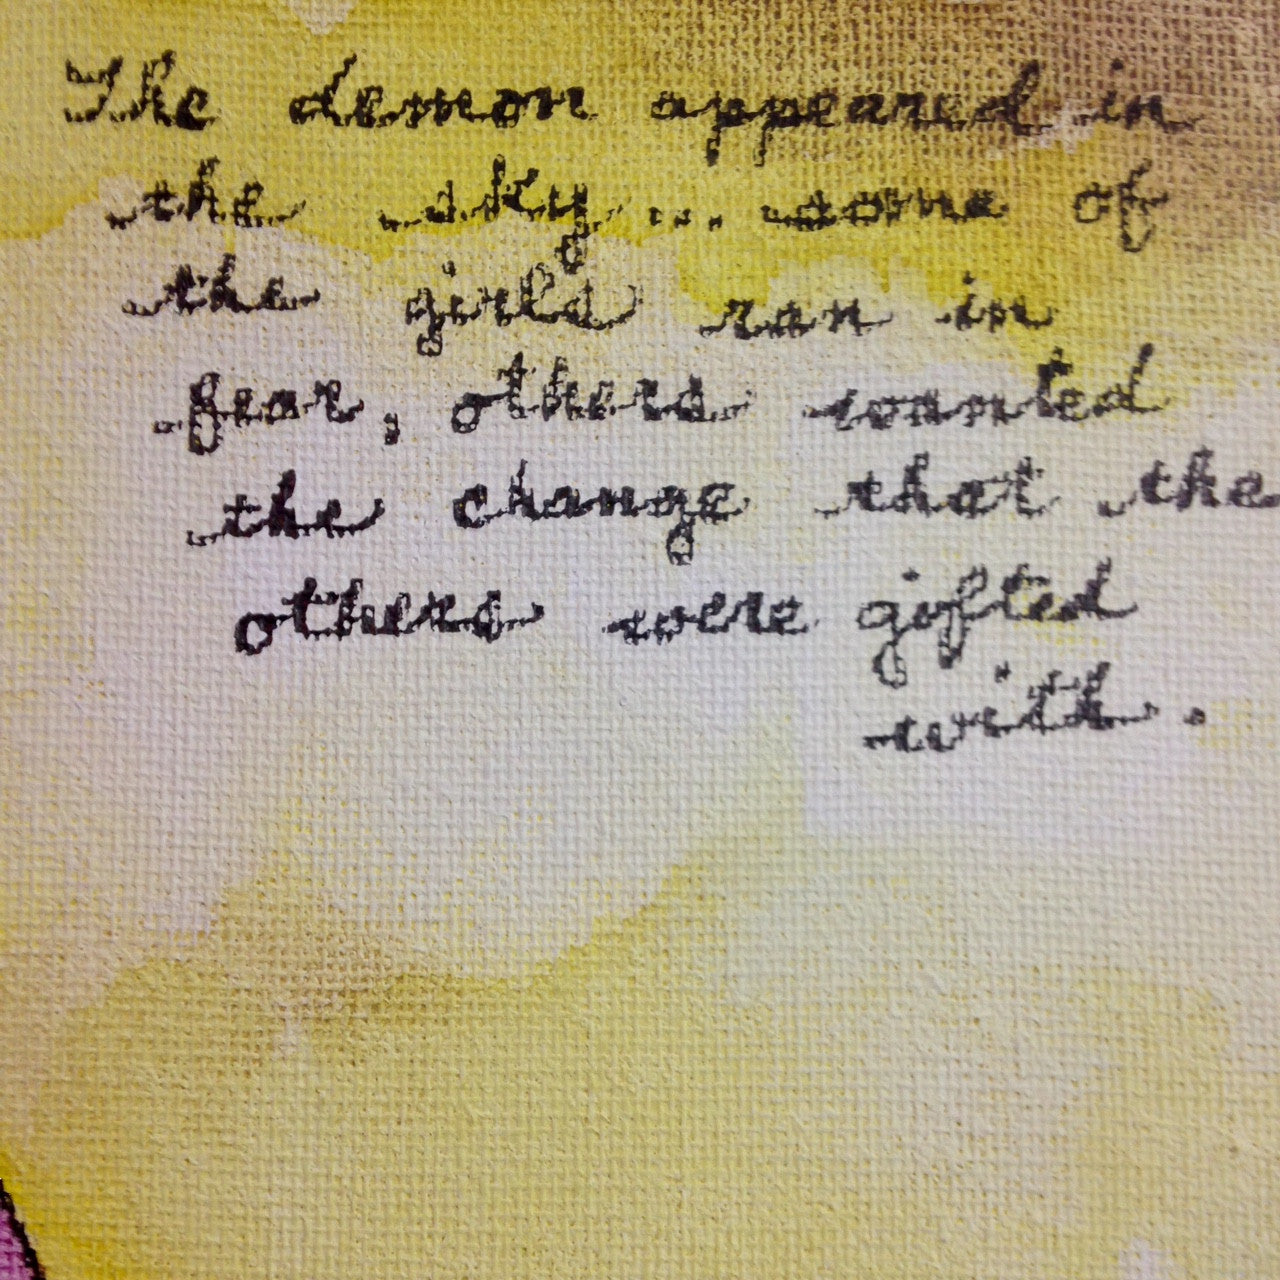 The demon appeared in
the sky... some of
the girls ran in
fear, others wanted
the change that the
others were gifted
with.